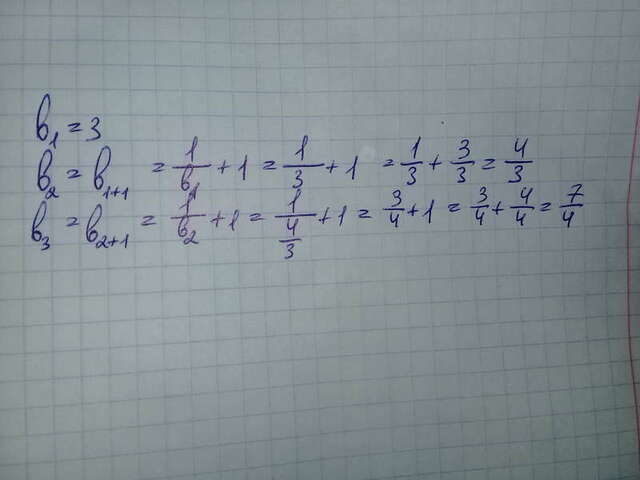 b₁ = 3
b₂ = b₁₊₁ = 1/b₁ + 1 = 1/3 + 1 = 1/3 + 3/3 = 4/3
b₃ = b₂₊₁ = 1/b₂ + 1 = 1/(4/3) + 1 = 3/4 + 1 = 3/4 + 4/4 = 7/4